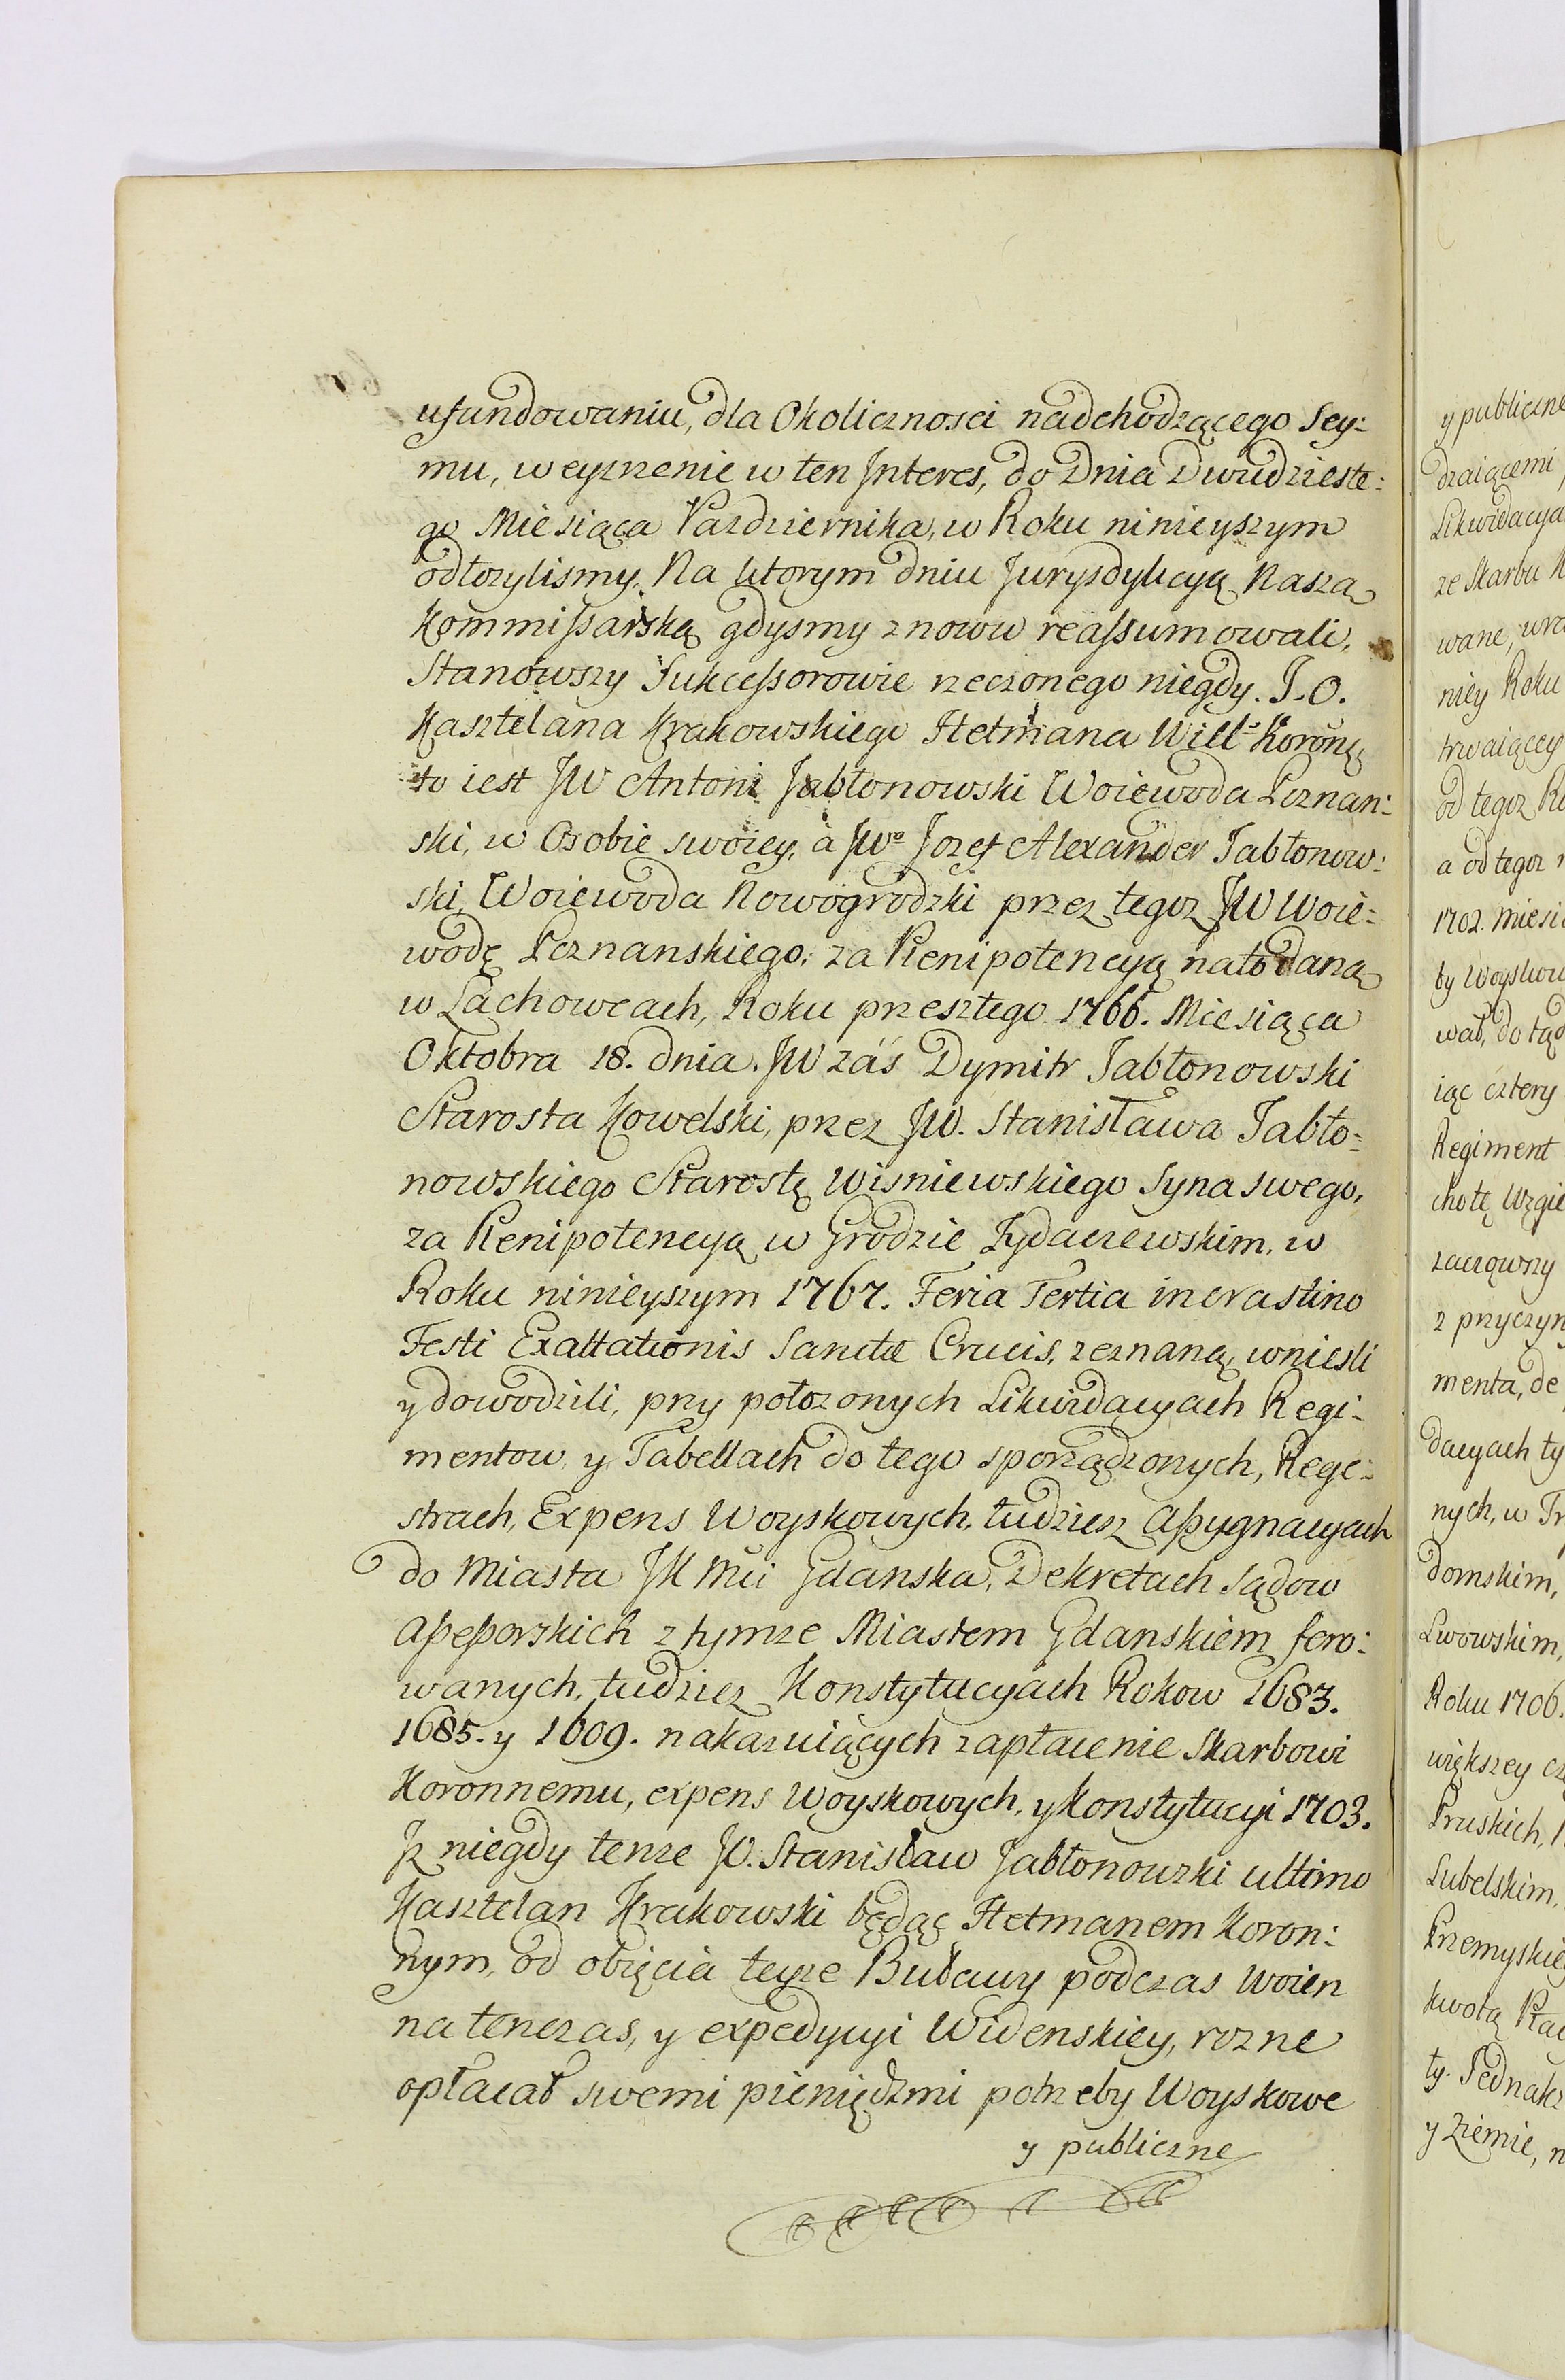 ufundowaniu, dla Okolicznosci nadchodzącego Sey:
mu, weyrzenie w ten Jnteres, do Dnia Dwudzieste:
go Miesiąca Pazdziernika, w Roku ninieyszym
odłozylismy. Na ktorym dniu Jurysdykcyą Naszą
Kommissarską gdysmy znowu reassumowali,
Stanowszy Sukcessorowie rzeczonego niegdy. J. O.
Kasztelana Krakowskiego Hetmana Wiel: Koronę
to iest JW Antoni Jabłonowski Woiewoda Poznan:
ski, w Osobie swoiey, à JWo Jozef Alexander Jabłonow:
ski Woiewoda Nowogrodzki przez tegoz JW Woie:
wodę Poznanskiego, za Plenipotencyą na to daną
w Lachowcach, Roku przeszłego 1766. Miesiąca
Oktobra 18. dnia. JW zaś Dymitr Jabłonowski
Starosta Kowelski, przez JW. Stanisława Jabło:
nowskiego Starostę Wisniewskiego Syna swego,
za Plenipotencyą w Grodzie Zydaczewskim, w
Roku ninieyszym 1767. Feria Tertia in crastino
Festi Exaltationis Sanctæ Crucis, zeznaną, wniesli
y dowodzili, przy połozonych Likwidacyach Regi:
mentow, y Tabellach do tego sporządzonych, Rege:
strach, Expens Woyskowych, tudziesz Assygnacyach
do Miasta JK Mci Gdanska, Dekretach Sądow
Assessorskich z tymze Miastem Gdanskiem fero:
wanych, tudziez Konstytucyach Rokow 1683.
1685. y 1609. nakazuiących zapłacenie Skarbowi
Koronnemu, expens Woyskowych, y Konstytucyi 1703.
Jz niegdy tenze JO. Stanisław Jabłonowski ultimo
Kasztelan Krakowski będąc Hetmanem Koron:
nym, od obięcia teyze Buławy podczas Woien
na tenczas, y expedycyi Widenskiey, rozne
opłacał swemi pieniędzmi potrzeby Woyskowe
y publiczne
y publiczne
dzaiącemi,
Likwidacya
ze Skarbu
wane,
niey Roku
trwaiącey
od tegoz
a od tegoz
1702.
by Woysko
wał, do
iąc cztery
Regiment
chotę
z przyczyn
menta, de
dacyach ty
nych, w Tr
domskim,
Lwowskim,
Roku 1706.
większey
Pruskich,
Lubelskim,
Przemyskie
kwotą
ty. Jednakz
y Ziemie,